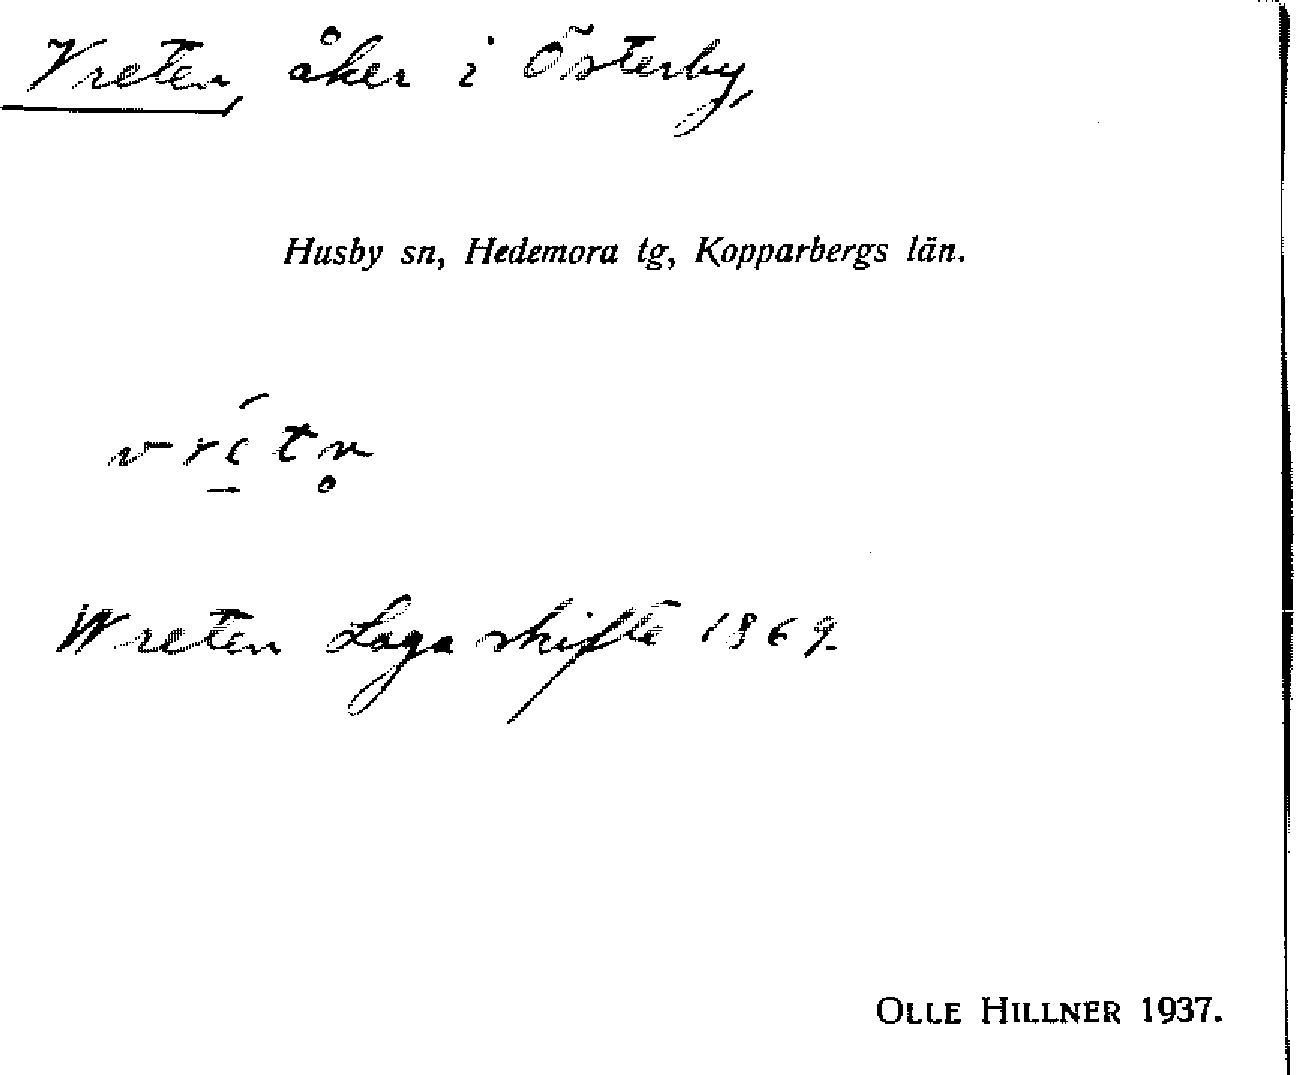 Vreten, åker i Österby,
Husby sn, Hedemora tg, Kopparbergs län.
Wreten Laga skifte 1869.
OLLE HILLNER 1937.